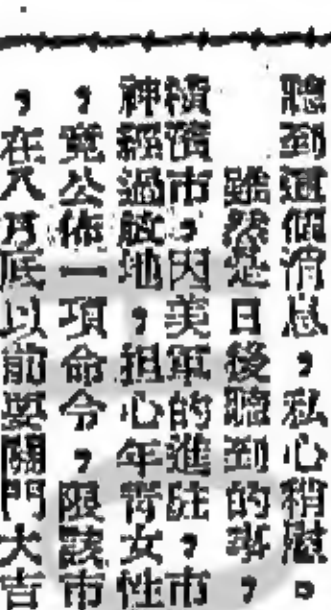 聽到這個消息，私心稍慰。
雖然是日後聽到的事，
橫濱市，因美軍的進駐，市
神經過敏地，担心年青女性
，竟公佈一項命令，限該市
，在八月底以前要關門大吉